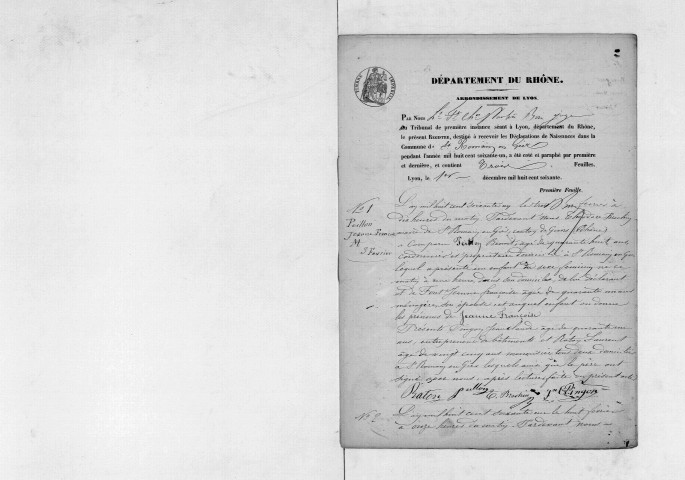 DÉPARTEMENT DU RHÔNE.
ARRONDISSEMENT DE LYON.
PAR NOUS
au Tribunal de première instance séant à Lyon, département du Rhône,
le présent REGISTRE, destiné à recevoir les Déclarations de Naissances dans la
Commune de St Romain en Gier
pendant l'année mil huit cent soixante-un, a été coté et paraphé par première
et dernière, et contient Trois Feuilles.
Lyon, le 1er décembre mil huit cent soixante.
Première Feuille.
No 1
Jeanne
3 Février
L'an mil huit cent soixante un le trois février à
dix heures du matin Pardevant Nous
maire de St Romain en Gier, canton de Givors (Rhône)
a comparu Benoit, âgé de quarante huit ans
et propriétaire domicilié à St Romain en Gier
lequel a présenté un enfant de sexe féminin né ce
matin à une heure dans son domicile, de lui déclarant
et de Font Jeanne âgée de quarante un ans
ménagère, son épouse et auquel enfant on donne
les prénoms de Jeanne Françoise
Présents Pingon Jean Claude âgé de quarante un
ans, entrepreneur de bâtiments et Laurent
âgé de vingt cinq ans tous deux domiciliés
à St Romain en Gier lesquels ainsi que le père ont
signé avec nous, après lecture faite du présent acte
Pingon
No 2
L'an mil huit cent soixante un le huit février
à onze heures du matin Pardevant nous